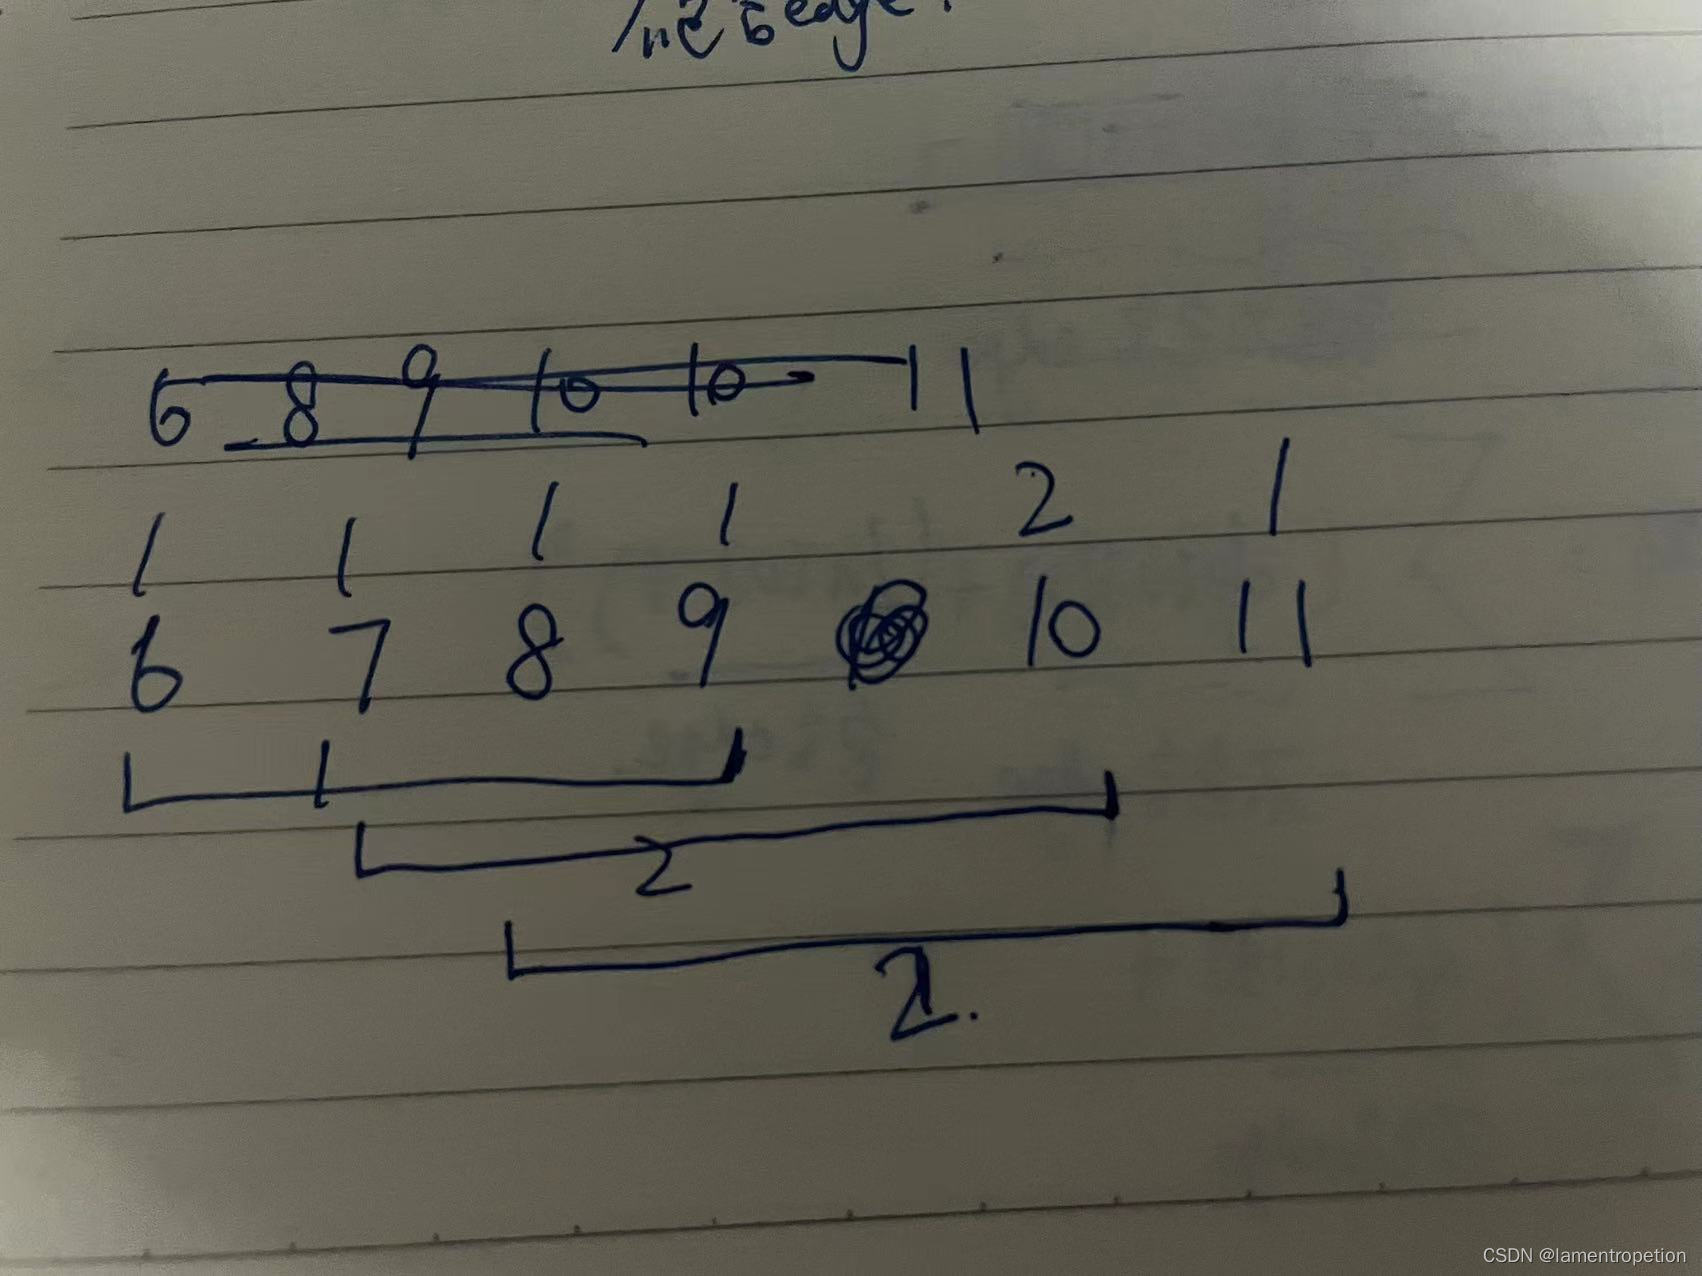 edge.
6 8 9 10 10 11
1 1 1 1 2 1
6 7 8 9 10 11
2
2.
CSDN @lamentropetion